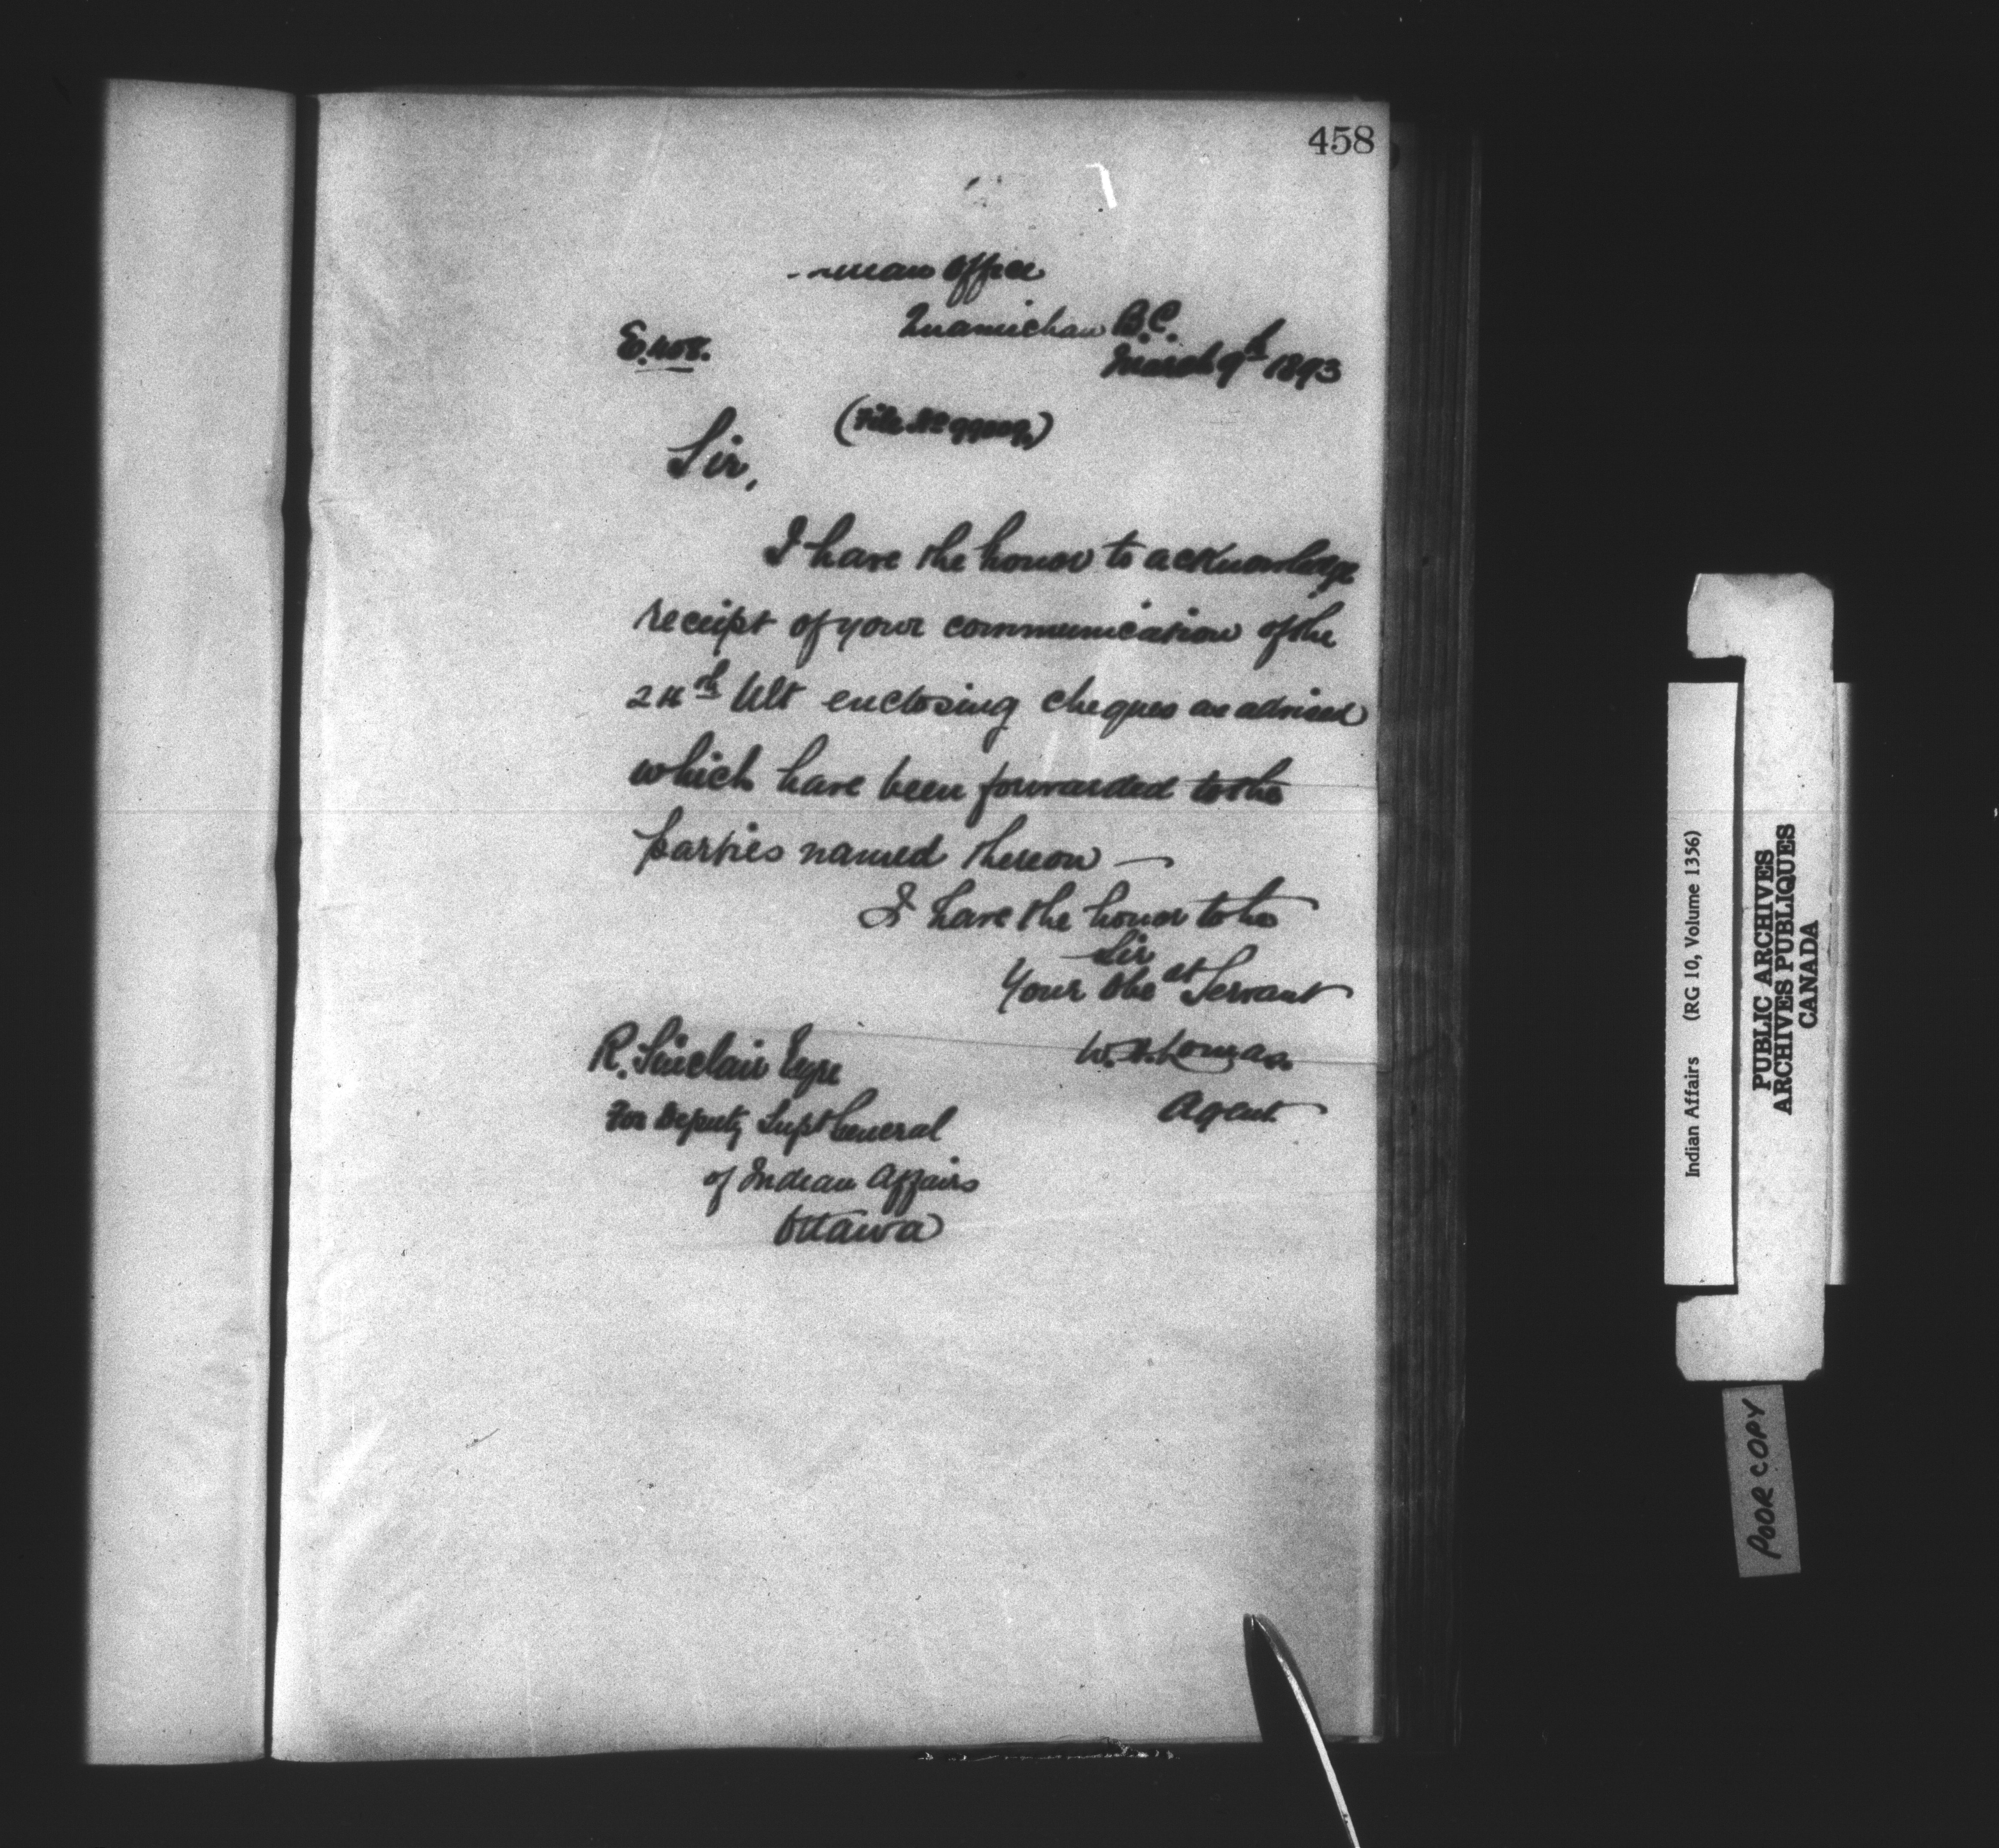 458
Indian Office
Quamichan B.C.
E. 408.
March 9th 1893
(File No
Sir,
I have the honor to acknowledge
receipt of your communication of the
24th Ult enclosing cheques as advised
which have been forwarded to the
parties named thereon —
I have the honor to be
Sir
Your Obe st Servant
W. H. Lomas
Agent
R. Sinclair Esqre
For Deputy Supt General
of Indian Affairs
Ottawa
Indian Affairs (RG 10, Volume 1356)
PUBLIC ARCHIVES
ARCHIVES PUBLIQUES
CANADA
POOR COPY